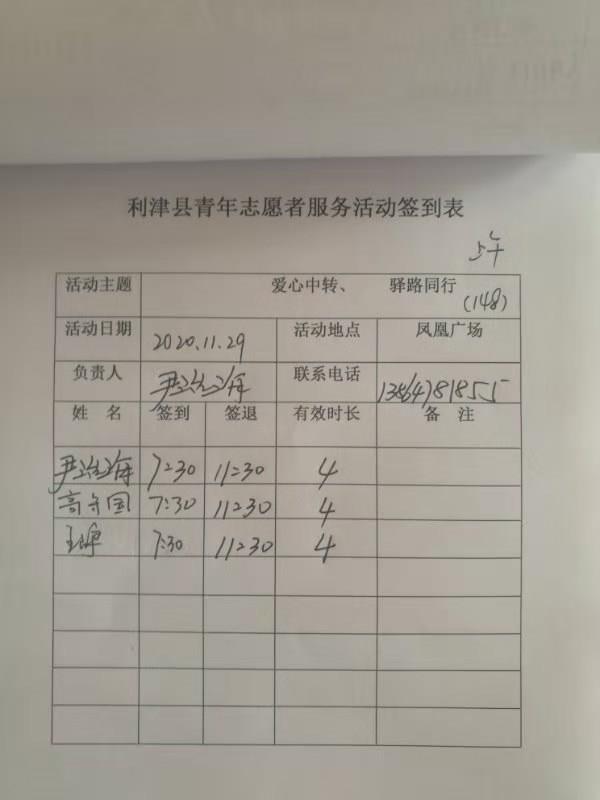 利津县青年志愿者服务活动签到表
上午
活动主题 爱心中转、 驿路同行
(148)
活动日期 2020.11.29 活动地点 凤凰广场
负责人 尹治海 联系电话 13864781855
姓 名 签到 签退 有效时长 备 注
尹治海 7:30 11:30 4
高守国 7:30 11:30 4
7:30 11:30 4